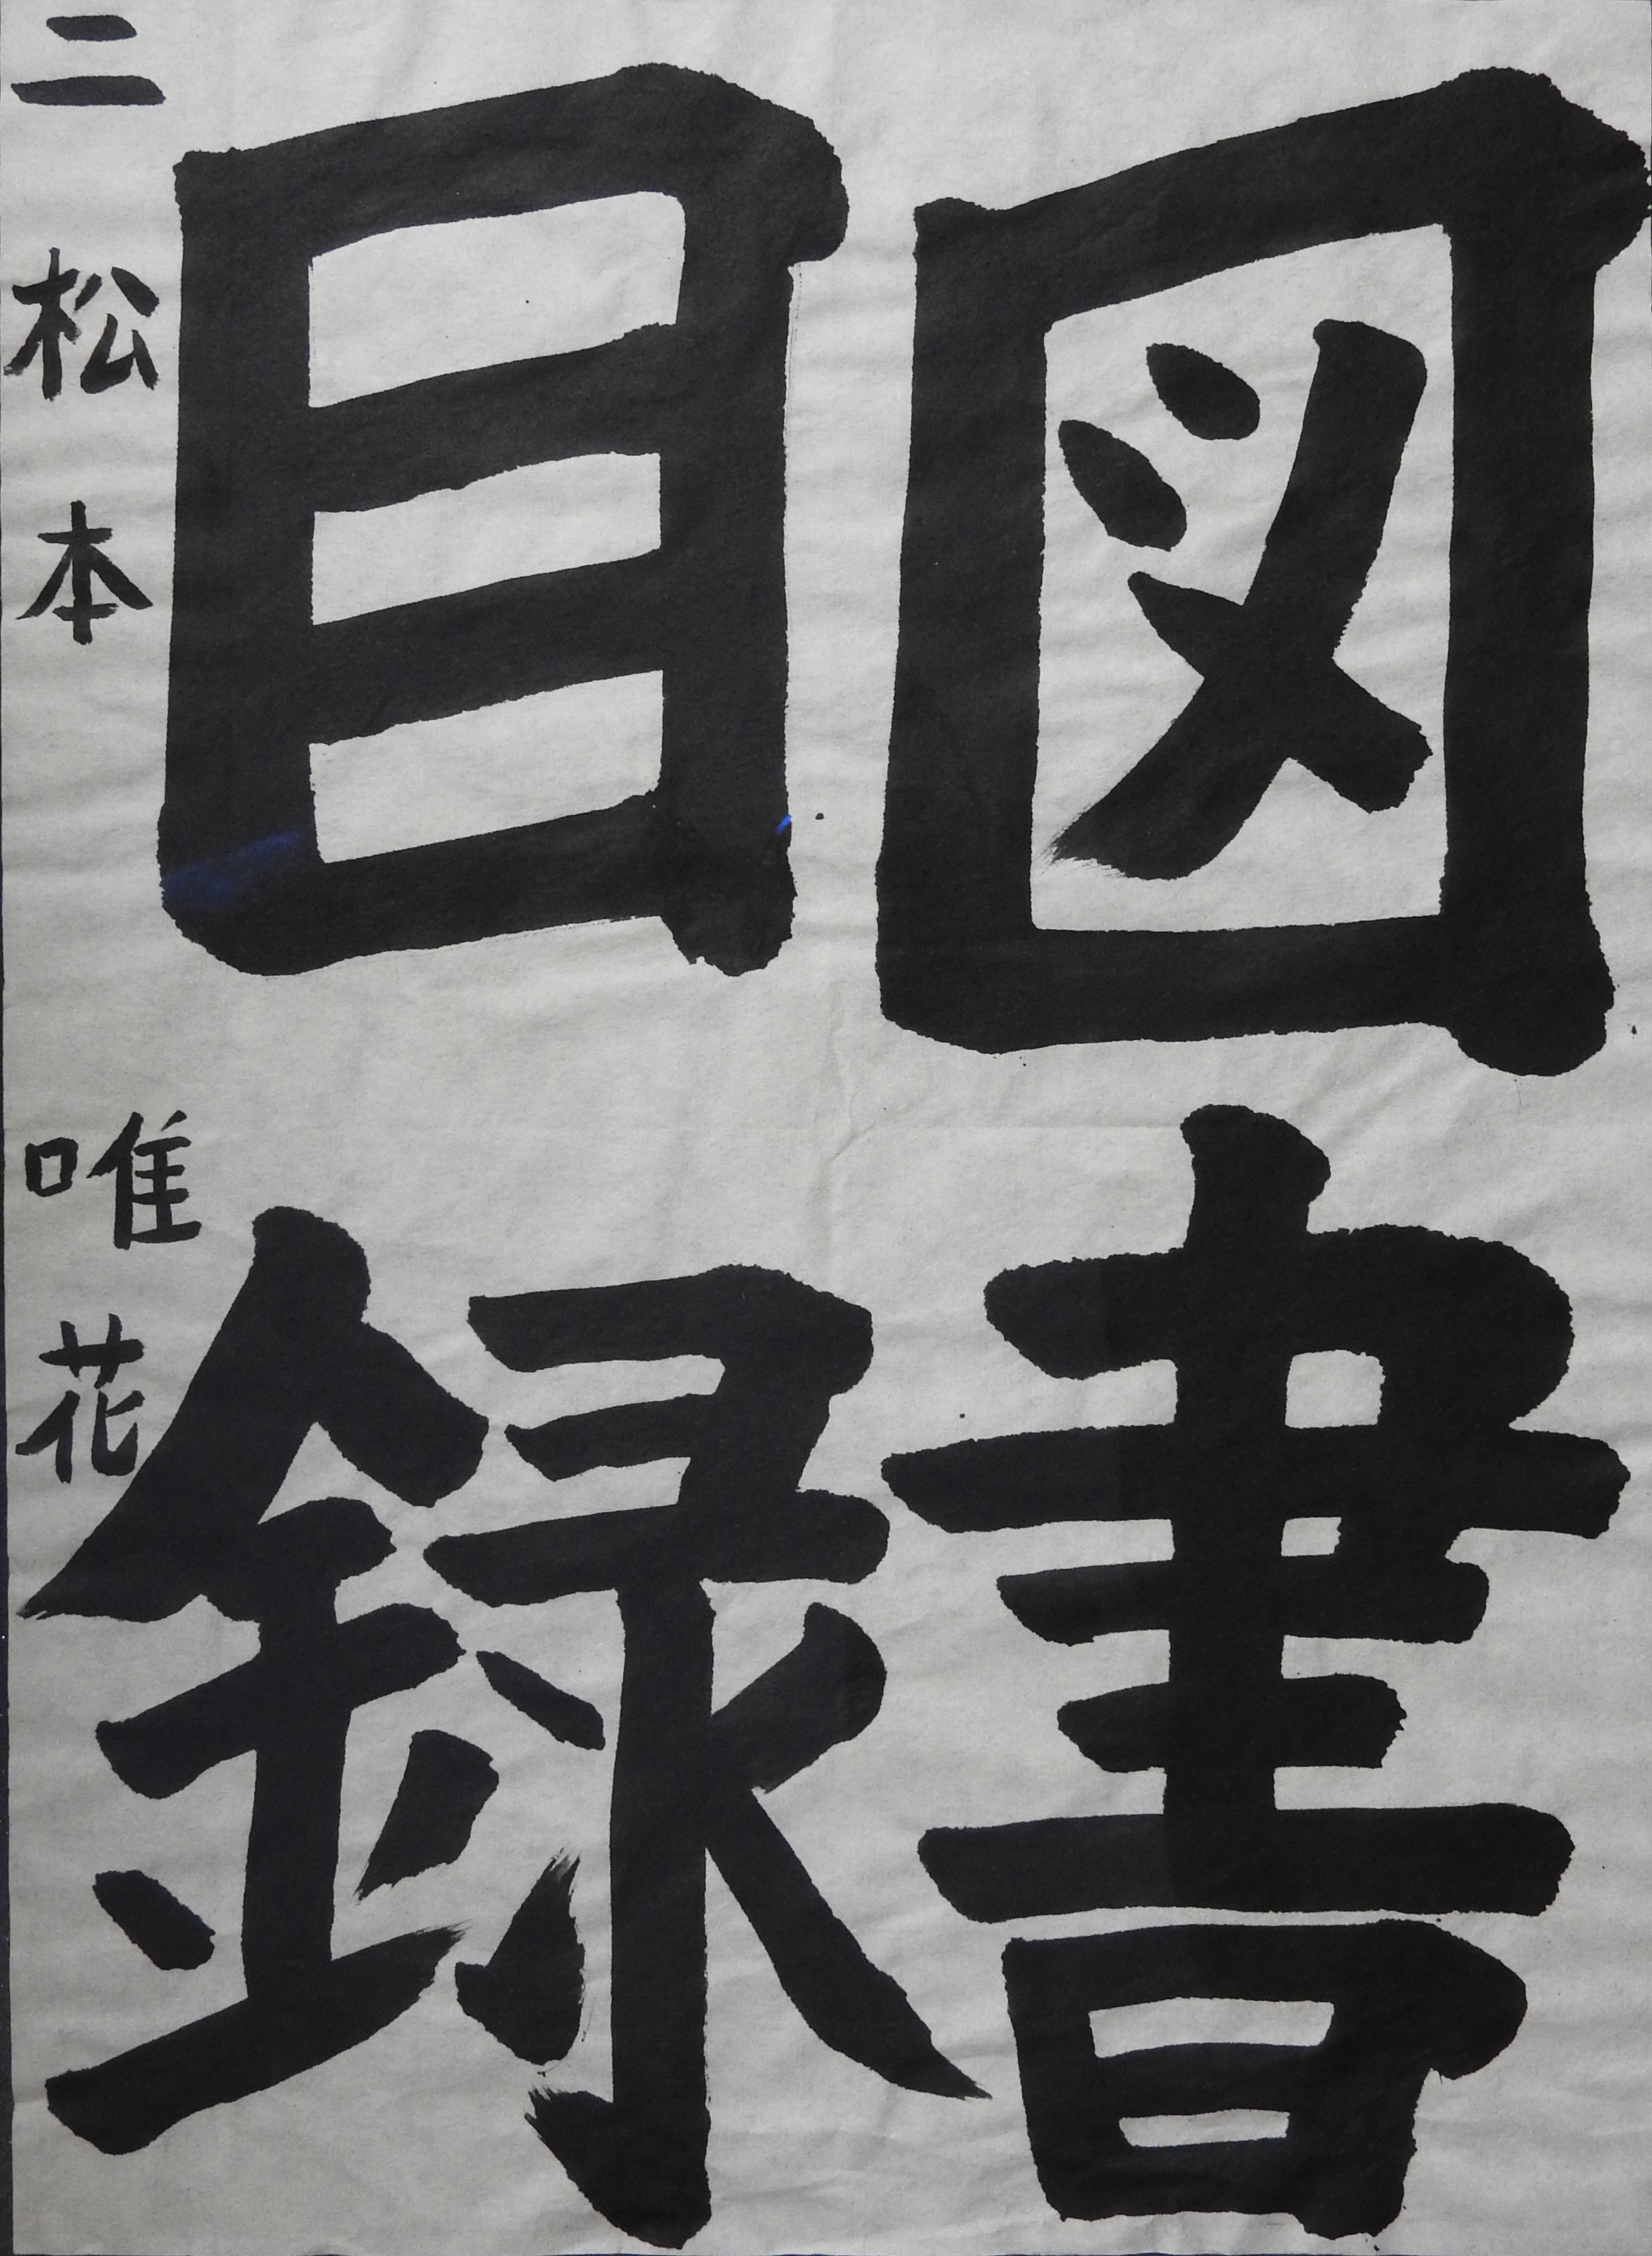 図書
目録
二 松本 唯花